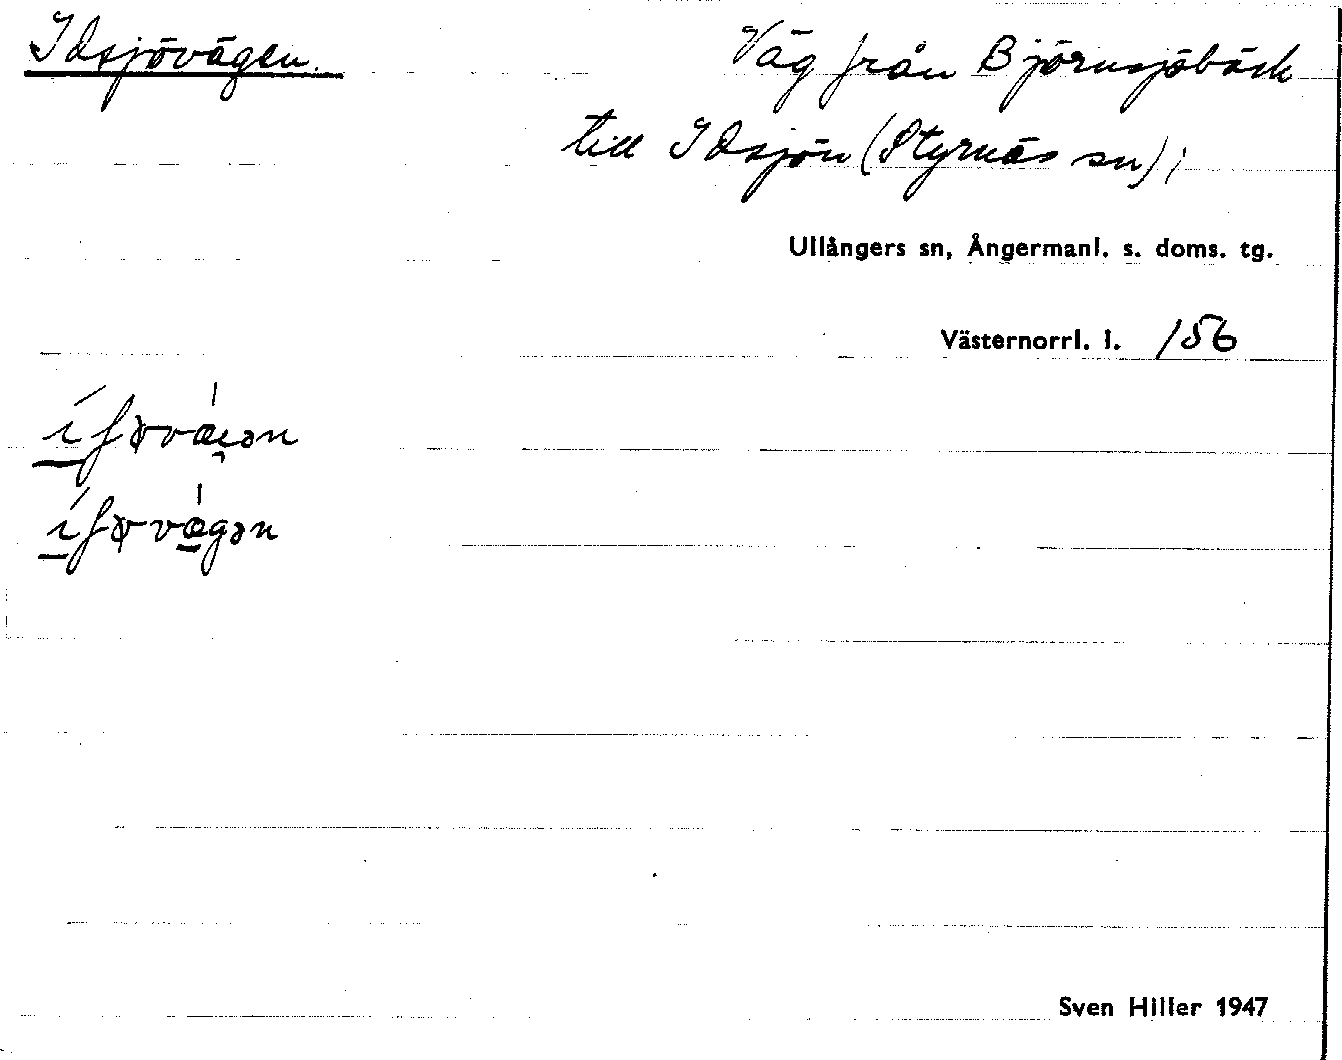 Idsjövägen.
Väg från Björnsjöbäck
till Idsjön (Styrnäs sn) i
Ullångers sn, Ångermanl. s. doms. tg.
Västernorrl. l. 156
Sven Hiller 1947